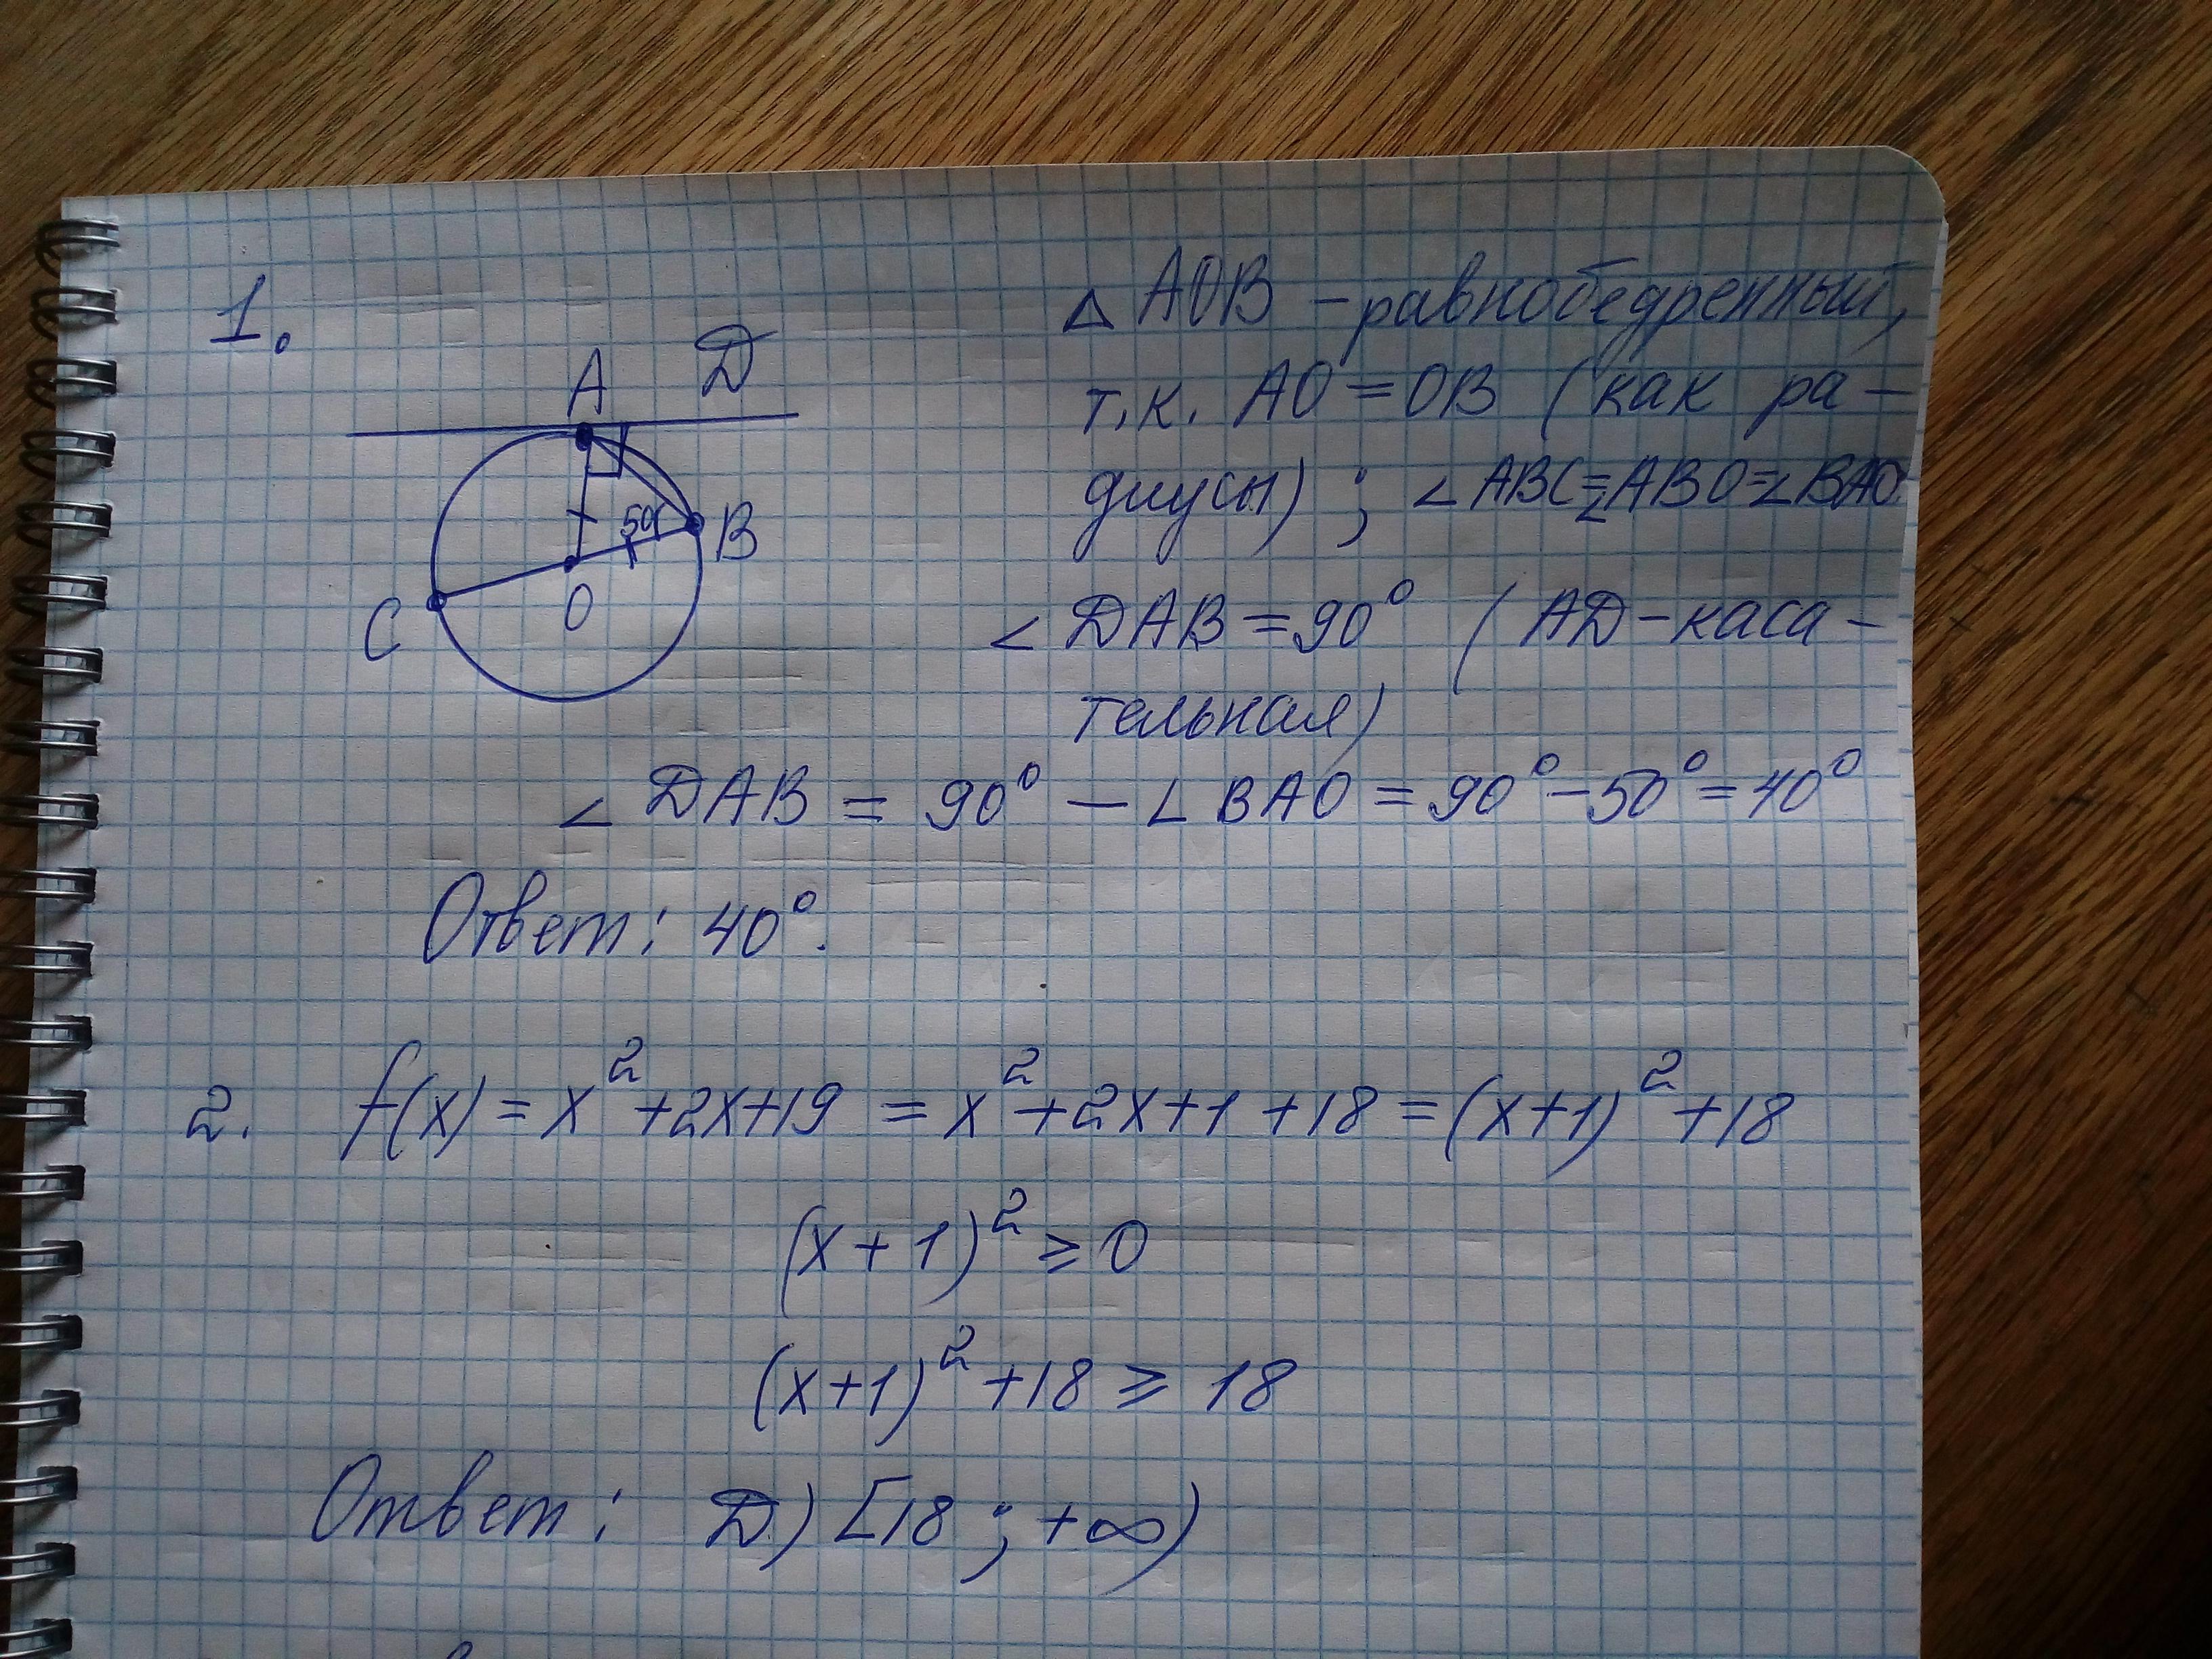 1.
A D
50°
B
O
C
△ AOB – равнобедренный,
т.к. AO = OB (как ра-
диусы); ∠ABC=∠ABO=∠BAO
∠ DAB = 90° (AD – каса-
тельная)
∠ DAB = 90° – ∠ BAO = 90° – 50° = 40°
Ответ: 40°.
2. f(x) = x² + 2x + 19 = x² + 2x + 1 + 18 = (x+1)² + 18
(x + 1)² ⩾ 0
(x+1)² + 18 ⩾ 18
Ответ: D) [18 ; +∞)